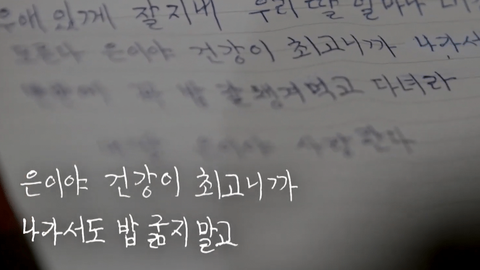 우애 있게 잘 지내 우리 딸
은이야 건강이 최고니까 나가서
밥 잘 챙겨먹고 다녀라
은이야 사랑한다
은이야 건강이 최고니까
나가서도 밥 굶지 말고